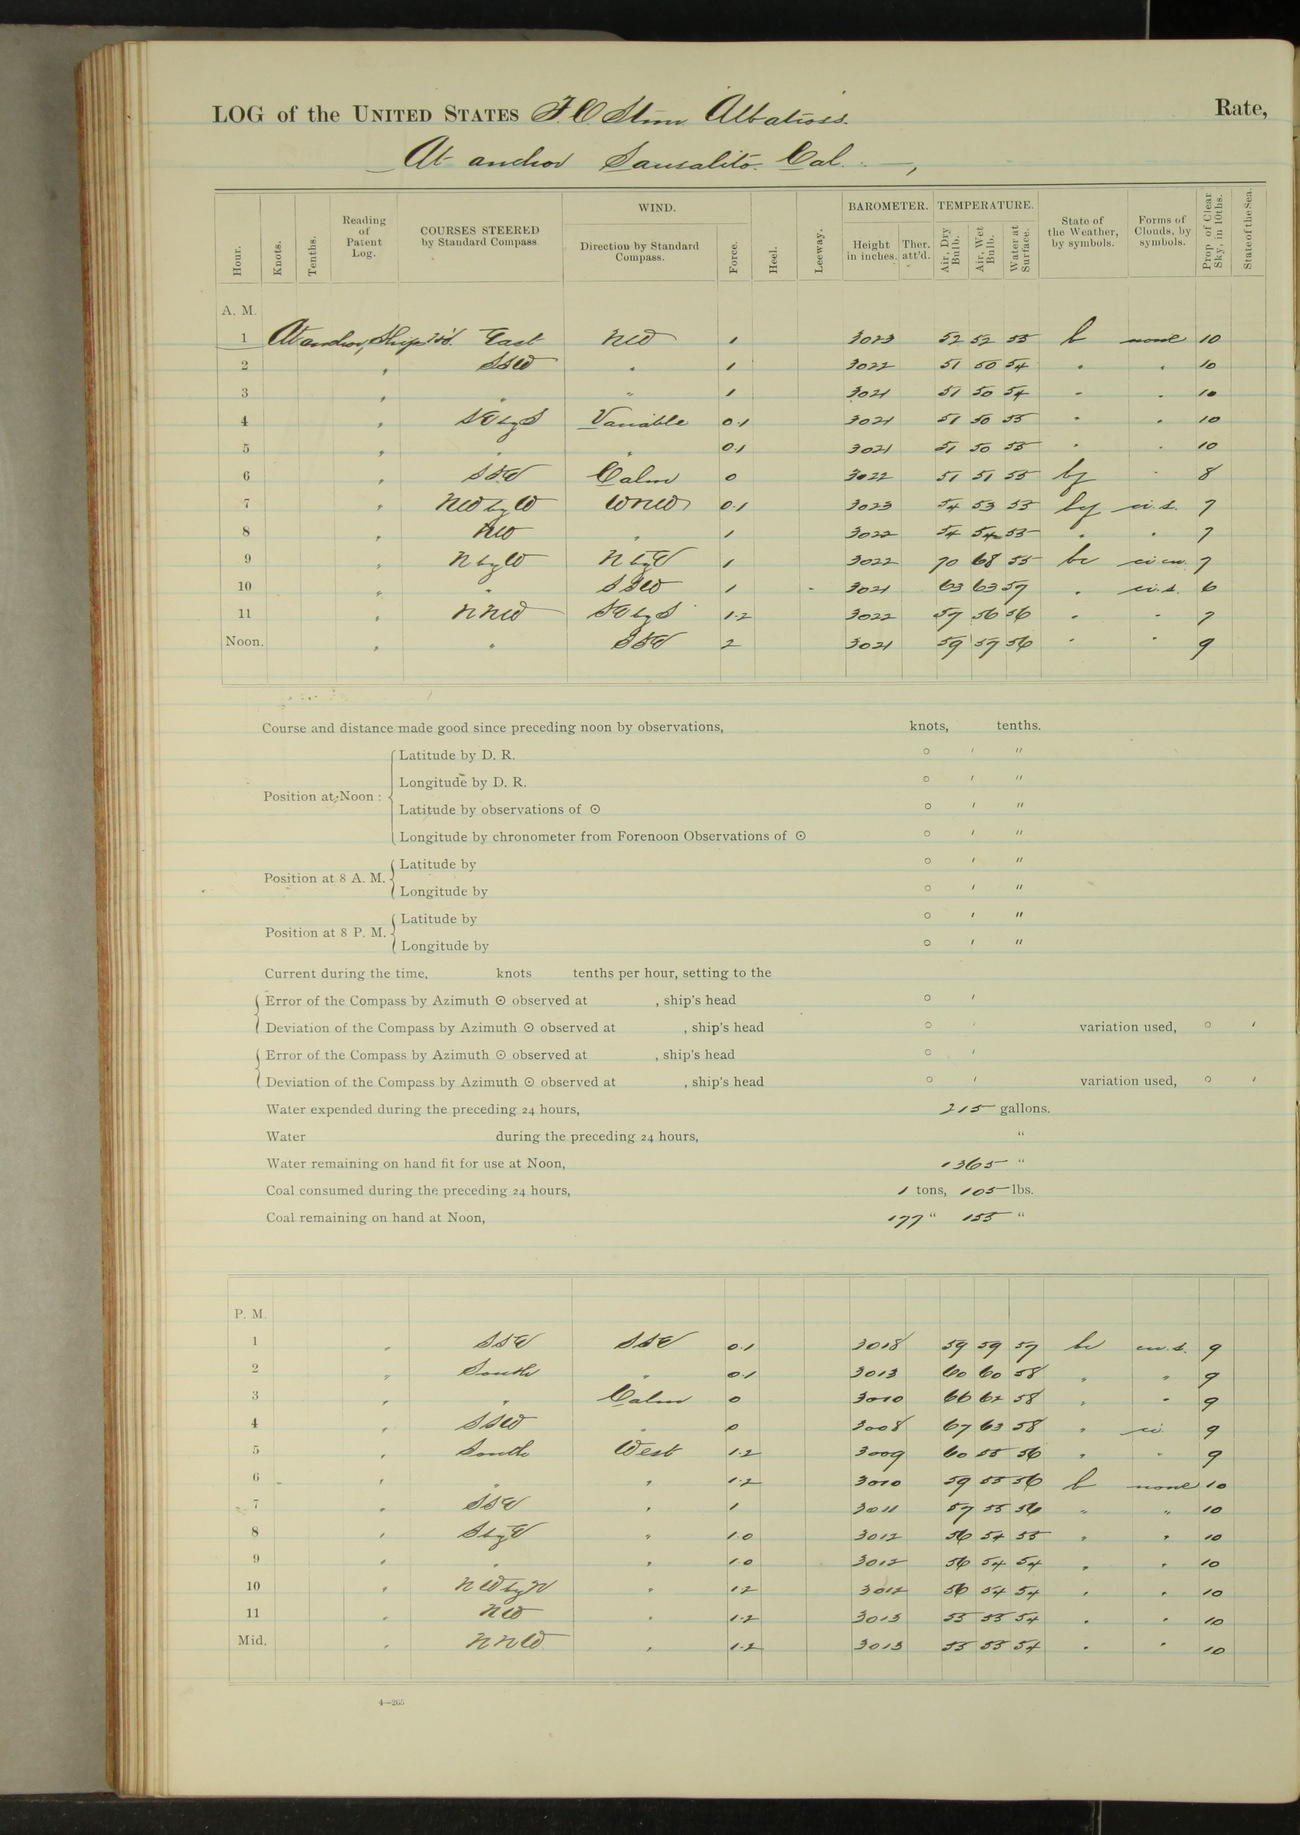 LOG of the UNITED STATES F. C. Stmr Albatross. Rate,
At anchor Sausalito. Cal.
WIND. BAROMETER. TEMPERATURE.
Hour. Knots. Tenths. Reading of Patent Log. COURSES STEERED by Standard Compass. Direction by Standard Compass. Force. Heel. Leeway. Height in inches. Ther. att'd. Air, Dry Bulb. Air, Wet Bulb. Water at Surface. State of the Weather, by symbols. Forms of Clouds, by symbols. Prop. of Clear Sky, in 10ths. State of the Sea.
A. M.
1 At anchor, Ship h'd. East NW 1 3023 52 52 55 b none 10
2 " SSW " 1 3022 51 50 54 " " 10
3 " " " 1 3021 51 50 54 " " 10
4 " SE by S Variable 0.1 3021 51 50 55 " " 10
5 " " " 0.1 3021 51 50 55 " " 10
6 " SSE Calm 0 3022 51 51 55 by " 8
7 " NW by W WNW 0.1 3023 54 53 53 by ci.s. 7
8 " NW " 1 3022 54 54 53 " " 7
9 " N by W N by E 1 3022 70 68 55 bc ci cu. 7
10 " " SSW 1 3021 63 63 57 " ci.s. 6
11 " NNW SE by S 1.2 3022 57 56 56 " " 7
Noon. " " SSE 2 3021 59 57 56 " " 9
Course and distance made good since preceding noon by observations, knots, tenths.
Latitude by D. R. ° ′ ″
Longitude by D. R. ° ′ ″
Position at Noon :
Latitude by observations of ⊙ ° ′ ″
Longitude by chronometer from Forenoon Observations of ⊙ ° ′ ″
Latitude by ° ′ ″
Position at 8 A. M.
Longitude by ° ′ ″
Latitude by ° ′ ″
Position at 8 P. M.
Longitude by ° ′ ″
Current during the time, knots tenths per hour, setting to the
Error of the Compass by Azimuth ⊙ observed at , ship's head ° ′
Deviation of the Compass by Azimuth ⊙ observed at , ship's head ° ′ variation used, ° ′
Error of the Compass by Azimuth ⊙ observed at , ship's head ° ′
Deviation of the Compass by Azimuth ⊙ observed at , ship's head ° ′ variation used, ° ′
Water expended during the preceding 24 hours, 215 gallons.
Water during the preceding 24 hours, "
Water remaining on hand fit for use at Noon, 1365 "
Coal consumed during the preceding 24 hours, 1 tons, 105 lbs.
Coal remaining on hand at Noon, 177 " 155 "
P. M.
1 " SSE SSE 0.1 3018 59 59 57 bc cu.s. 9
2 " South " 0.1 3013 60 60 58 " " 9
3 " " Calm 0 3010 66 62 58 " " 9
4 " SSW " 0 3008 67 63 58 " ci. 9
5 " South West 1.2 3009 60 55 56 " " 9
6 " " " 1.2 3010 59 55 56 b none 10
7 " SSE " 1 3011 57 55 56 " " 10
8 " S by E " 1.0 3012 56 54 55 " " 10
9 " " " 1.0 3012 56 54 54 " " 10
10 " NW by N " 1.2 3012 56 54 54 " " 10
11 " NW " 1.2 3013 55 55 54 " " 10
Mid. " NNW " 1.2 3013 55 55 54 " " 10
4—265